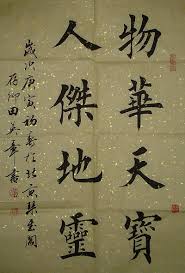 物華天寶
人傑地靈
歲次庚寅初春於北京琴玉閣
田英章書